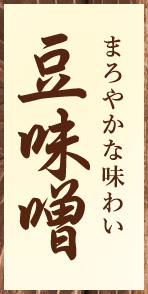 まろやかな味わい
豆味噌